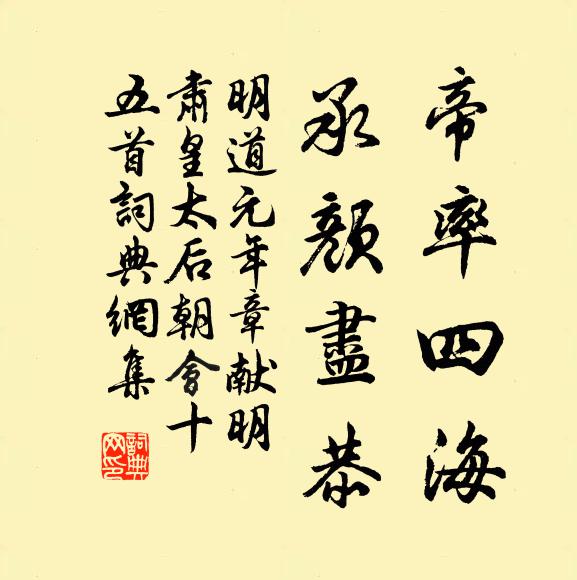 帝率四海
承顏盡恭
明道元年章献明
肅皇太后朝會十
五首詞典網集
詞典網印